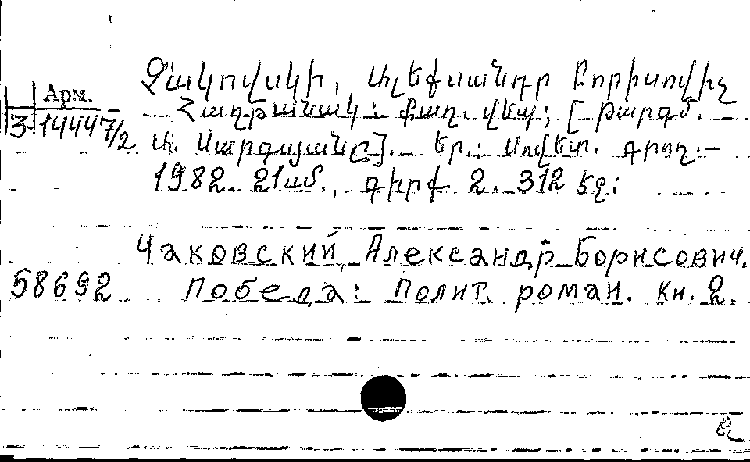 Չակովսկի, Ալեքսանդր Բորիսովիչ
Арм.
Հաղթանակ: Քաղ. վեպ: [Թարգմ.
3-14447/2
Ա. Սարգսյանը]. Եր.: Սովետ. գրող.—
1982. 21սմ., գիրք 2. 312 էջ:
Чаковский, Александр Борисович.
58692
Победа: Полит. роман. кн. 2.